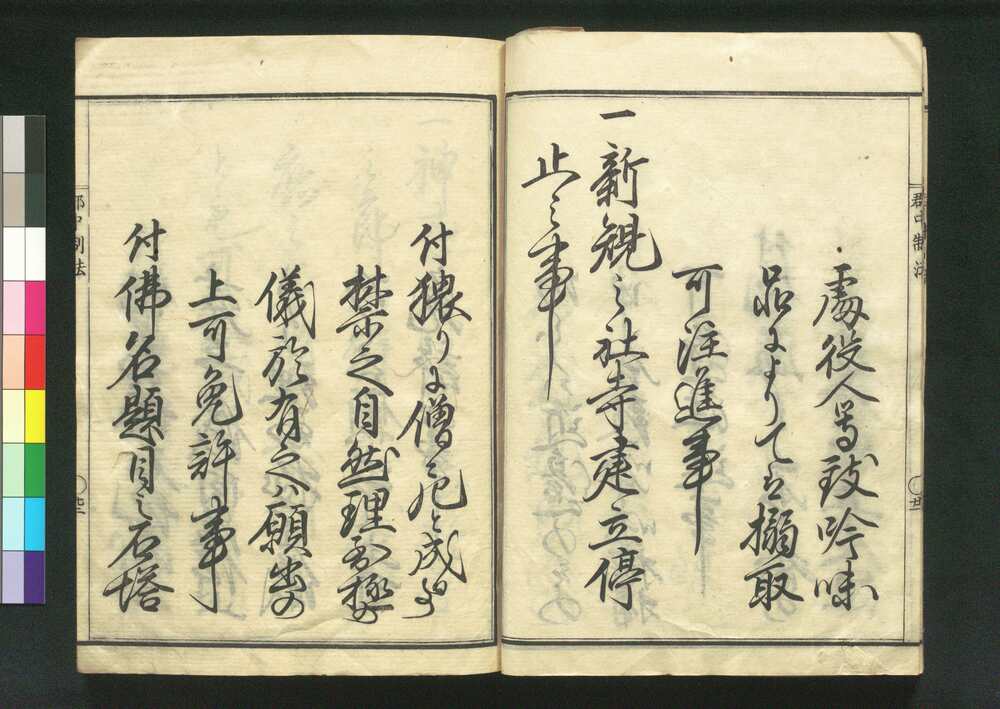 處役人等致吟味
品によりては搦取
可注進事
一新規之社寺建立停
止之事
付猥りに僧尼と成事
禁之自然理至極の
儀於有之ハ願出の
上可免許事
付佛名題目之石塔
郡中制法
郡中制法